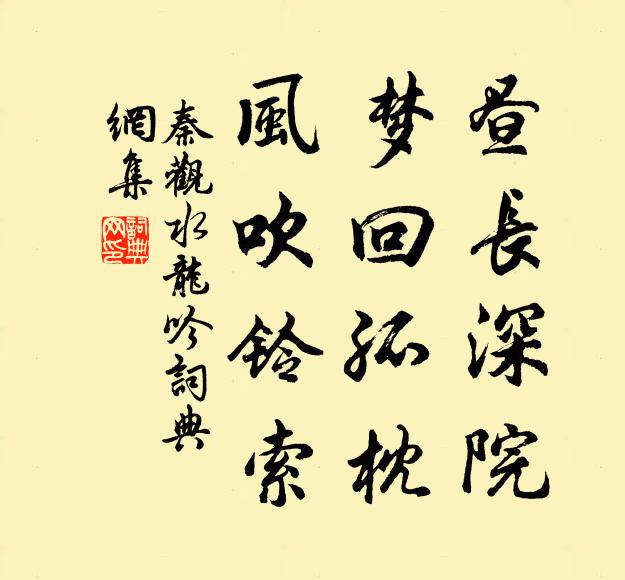 昼長深院
梦回孤枕
風吹鈴索
秦觀水龍吟詞典
網集
詞典
网印